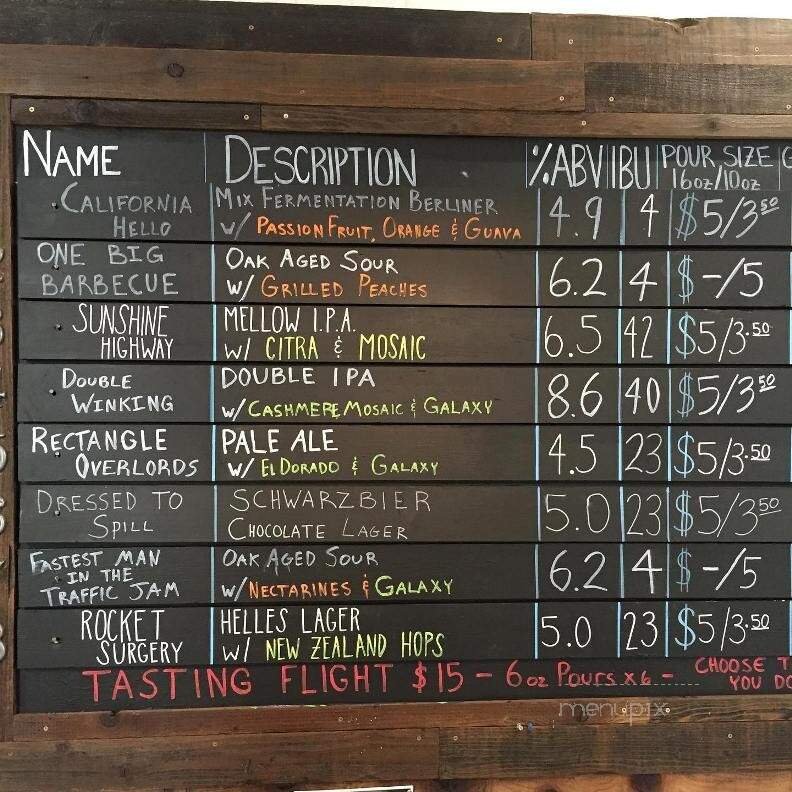 NAME DESCRIPTION %ABV IBU POUR SIZE
16oz/10oz
CALIFORNIA HELLO MIX FERMENTATION BERLINER w/ PASSION FRUIT, ORANGE & GUAVA 4.9 4 $5/3.50
ONE BIG BARBECUE OAK AGED SOUR W/ GRILLED PEACHES 6.2 4 $-/5
SUNSHINE HIGHWAY MELLOW I.P.A. W/ CITRA & MOSAIC 6.5 42 $5/3.50
DOUBLE WINKING DOUBLE IPA w/ CASHMERE MOSAIC & GALAXY 8.6 40 $5/3.50
RECTANGLE OVERLORDS PALE ALE W/ EL DORADO & GALAXY 4.5 23 $5/3.50
DRESSED TO SPILL SCHWARZBIER CHOCOLATE LAGER 5.0 23 $5/3.50
FASTEST MAN IN THE TRAFFIC JAM OAK AGED SOUR W/ NECTARINES & GALAXY 6.2 4 $-/5
ROCKET SURGERY HELLES LAGER W/ NEW ZEALAND HOPS 5.0 23 $5/3.50
TASTING FLIGHT $15 - 6oz Pours x 6 - CHOOSE
YOU
menupix